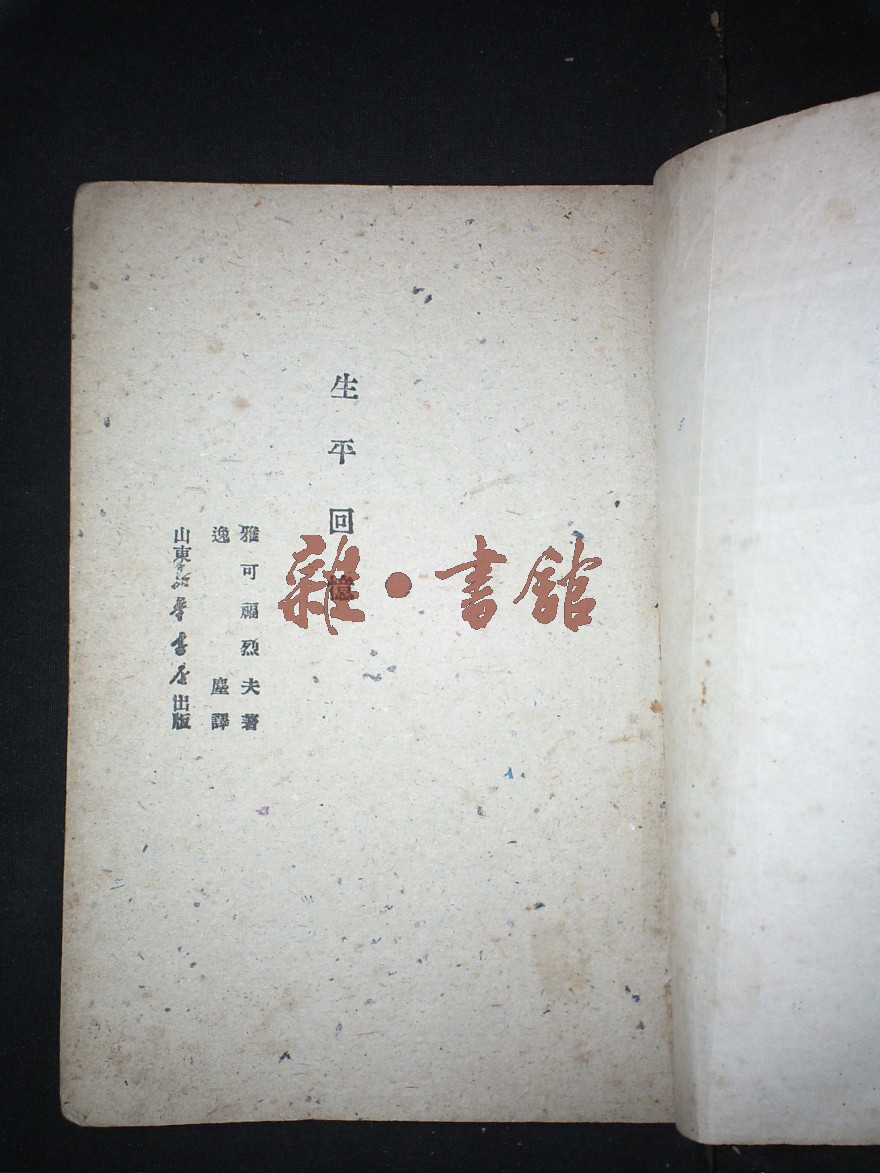 生平回憶
雅可福烈夫著
逸塵譯
山東新華書店出版
雜·書館